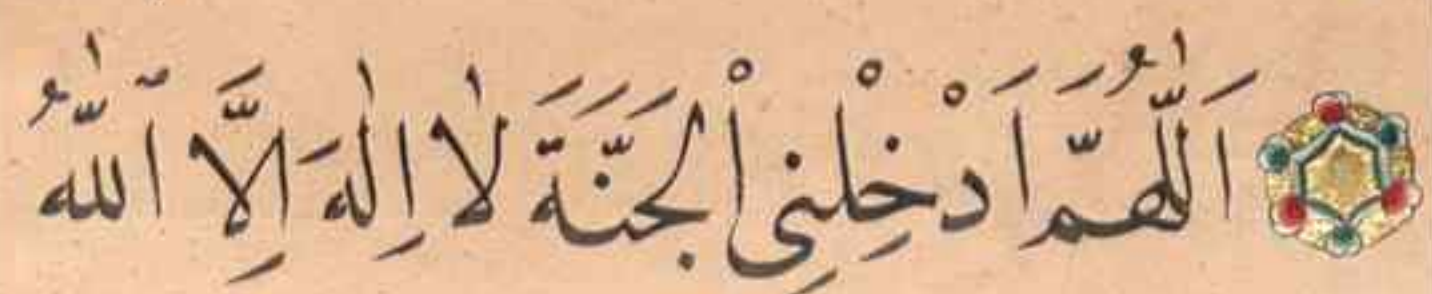 اَللّٰهُمَّ اَدْخِلْنِى اْلجَنَّةَ لاٰ اِلٰهَ اِلاَّ اۤللّٰهُ